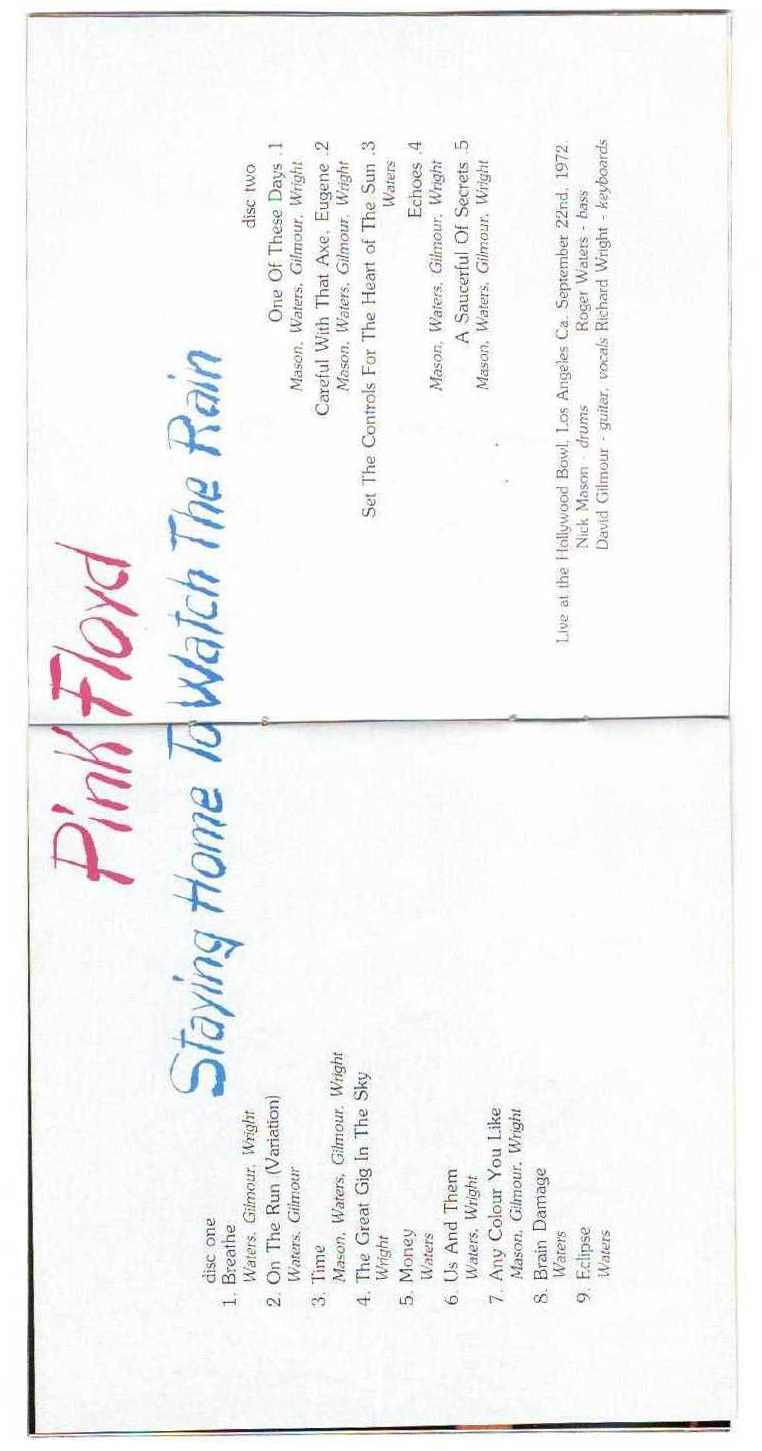 Pink Floyd
Staying Home To Watch The Rain
disc one
1. Breathe
Waters, Gilmour, Wright
2. On The Run (Variation)
Waters, Gilmour
3. Time
Mason, Waters, Gilmour, Wright
4. The Great Gig In The Sky
Wright
5. Money
Waters
6. Us And Them
Waters, Wright
7. Any Colour You Like
Mason, Gilmour, Wright
8. Brain Damage
Waters
9. Eclipse
Waters
disc two
One Of These Days .1
Mason, Waters, Gilmour, Wright
Careful With That Axe, Eugene .2
Mason, Waters, Gilmour, Wright
Set The Controls For The Heart of The Sun .3
Waters
Echoes .4
Mason, Waters, Gilmour, Wright
A Saucerful Of Secrets .5
Mason, Waters, Gilmour, Wright
Live at the Hollywood Bowl, Los Angeles Ca. September 22nd, 1972.
Nick Mason - drums Roger Waters - bass
David Gilmour - guitar, vocals Richard Wright - keyboards